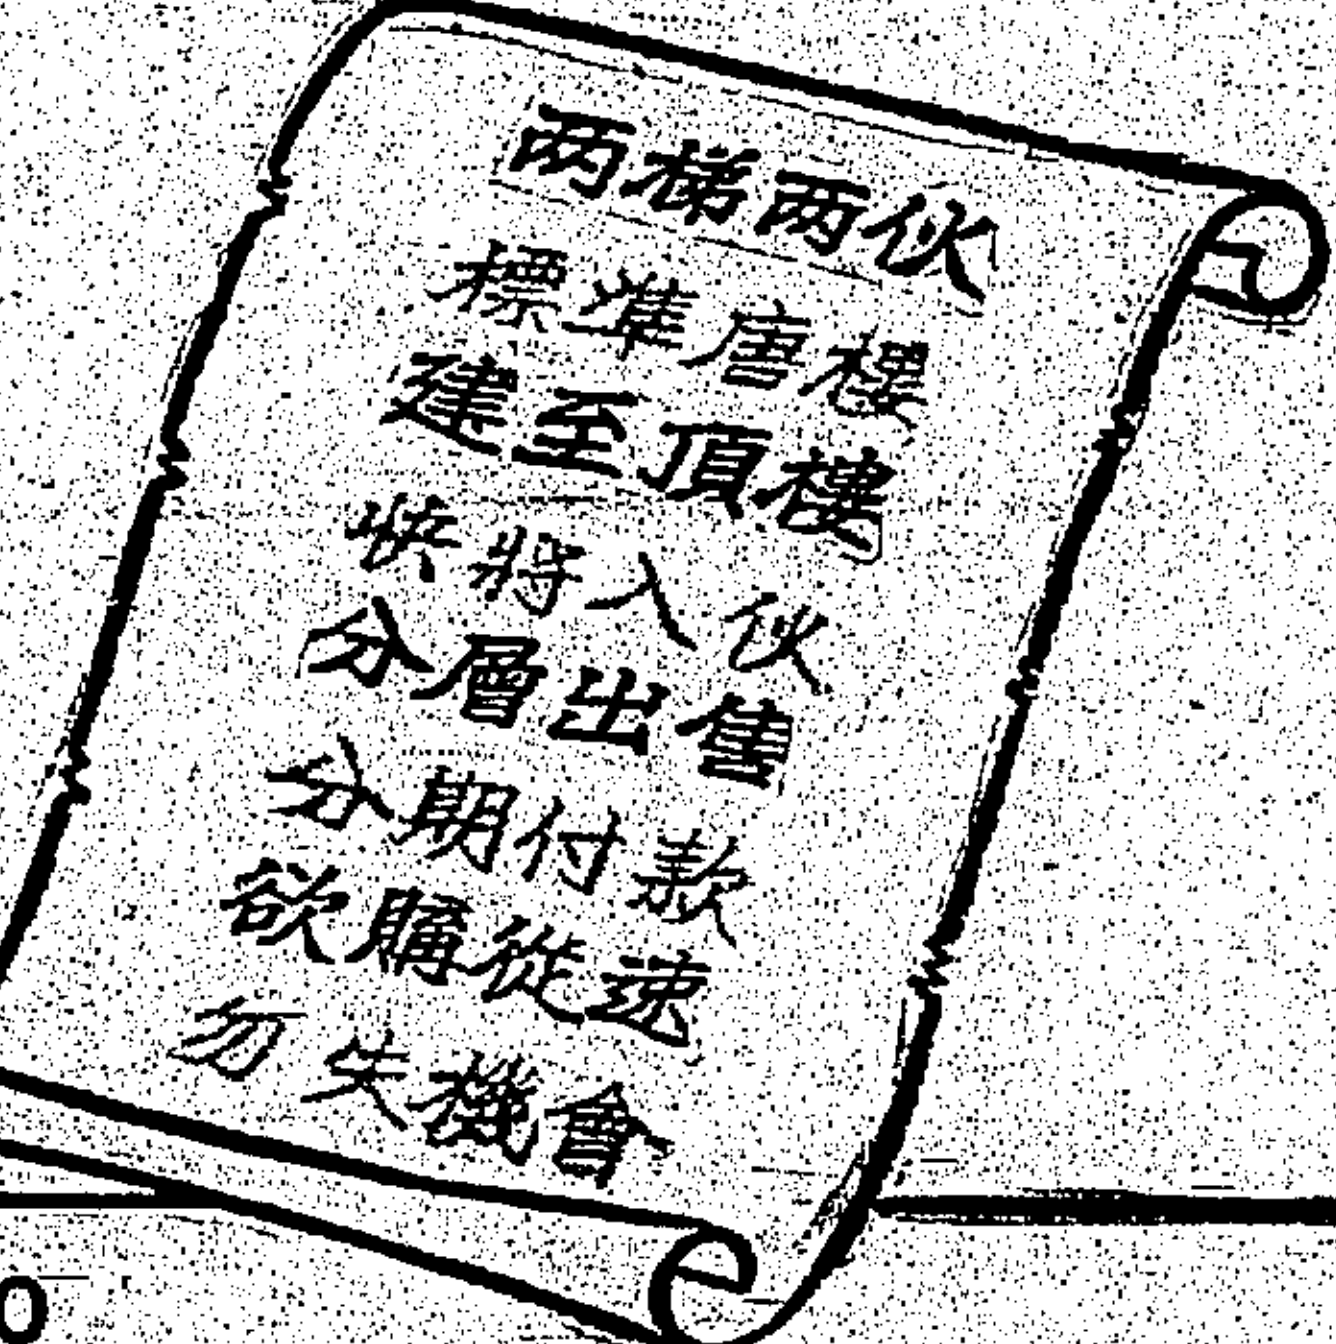 两梯两伙
標準唐樓
建至頂樓
快將入伙
分層出售
分期付款
欲購從速
勿失機會